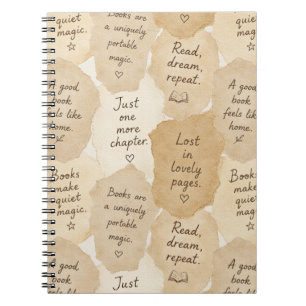 quiet
magic.
Books are
a uniquely
portable
magic.
Read,
dream,
repeat.
A good
book
feels like
home.
Just
one more
chapter.
Lost
in
lovely
pages.
A good
book
feels like
home.
Books
make
quiet
magic.
Books are
a uniquely
portable
magic.
Read,
dream,
repeat.
Books
make
quiet
magic.
A good
book
Just
A good
book
feels like